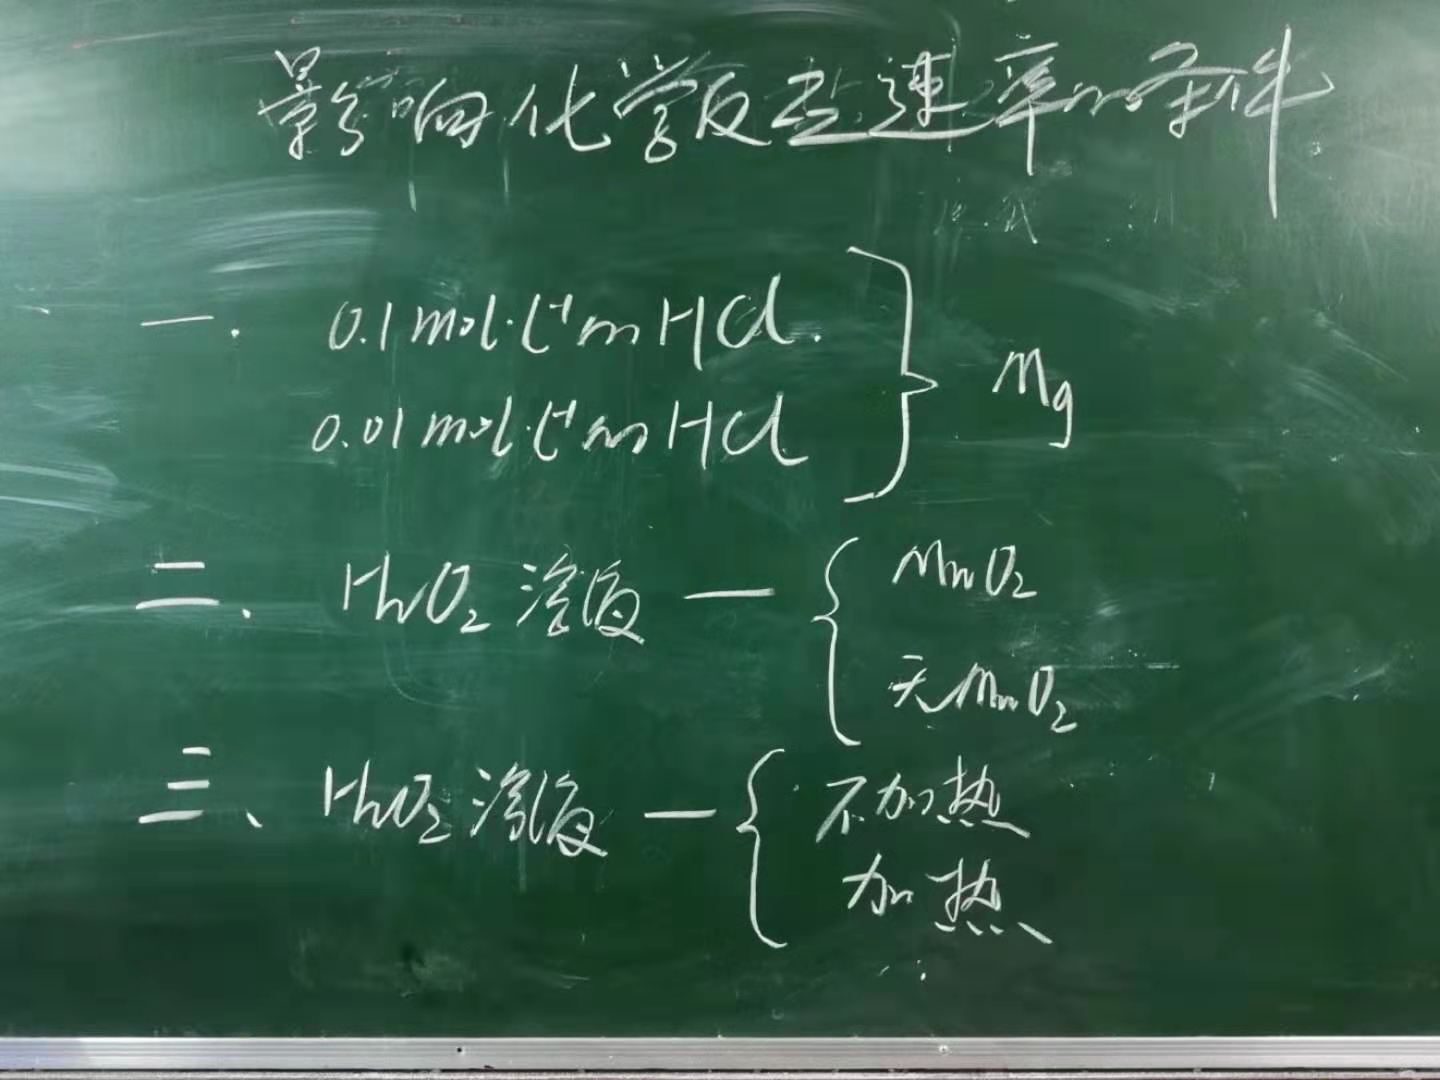 影响化学反应速率的条件
一. 0.1mol·L⁻¹的HCl.
0.01mol·L⁻¹的HCl
} Mg
二、H₂O₂溶液 — {
MnO₂
无MnO₂
三、H₂O₂溶液 — {
不加热
加热